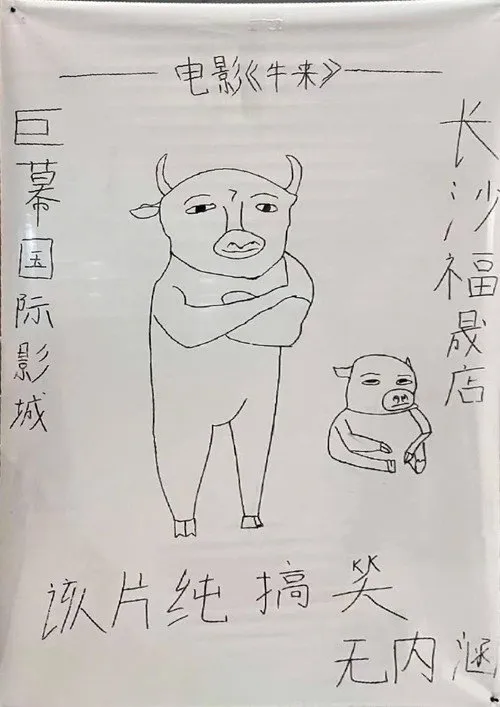 电影《牛来》
巨幕国际影城
长沙福晟店
该片纯搞笑
无内涵